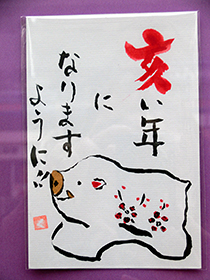 亥い年
に
なります
ように!!